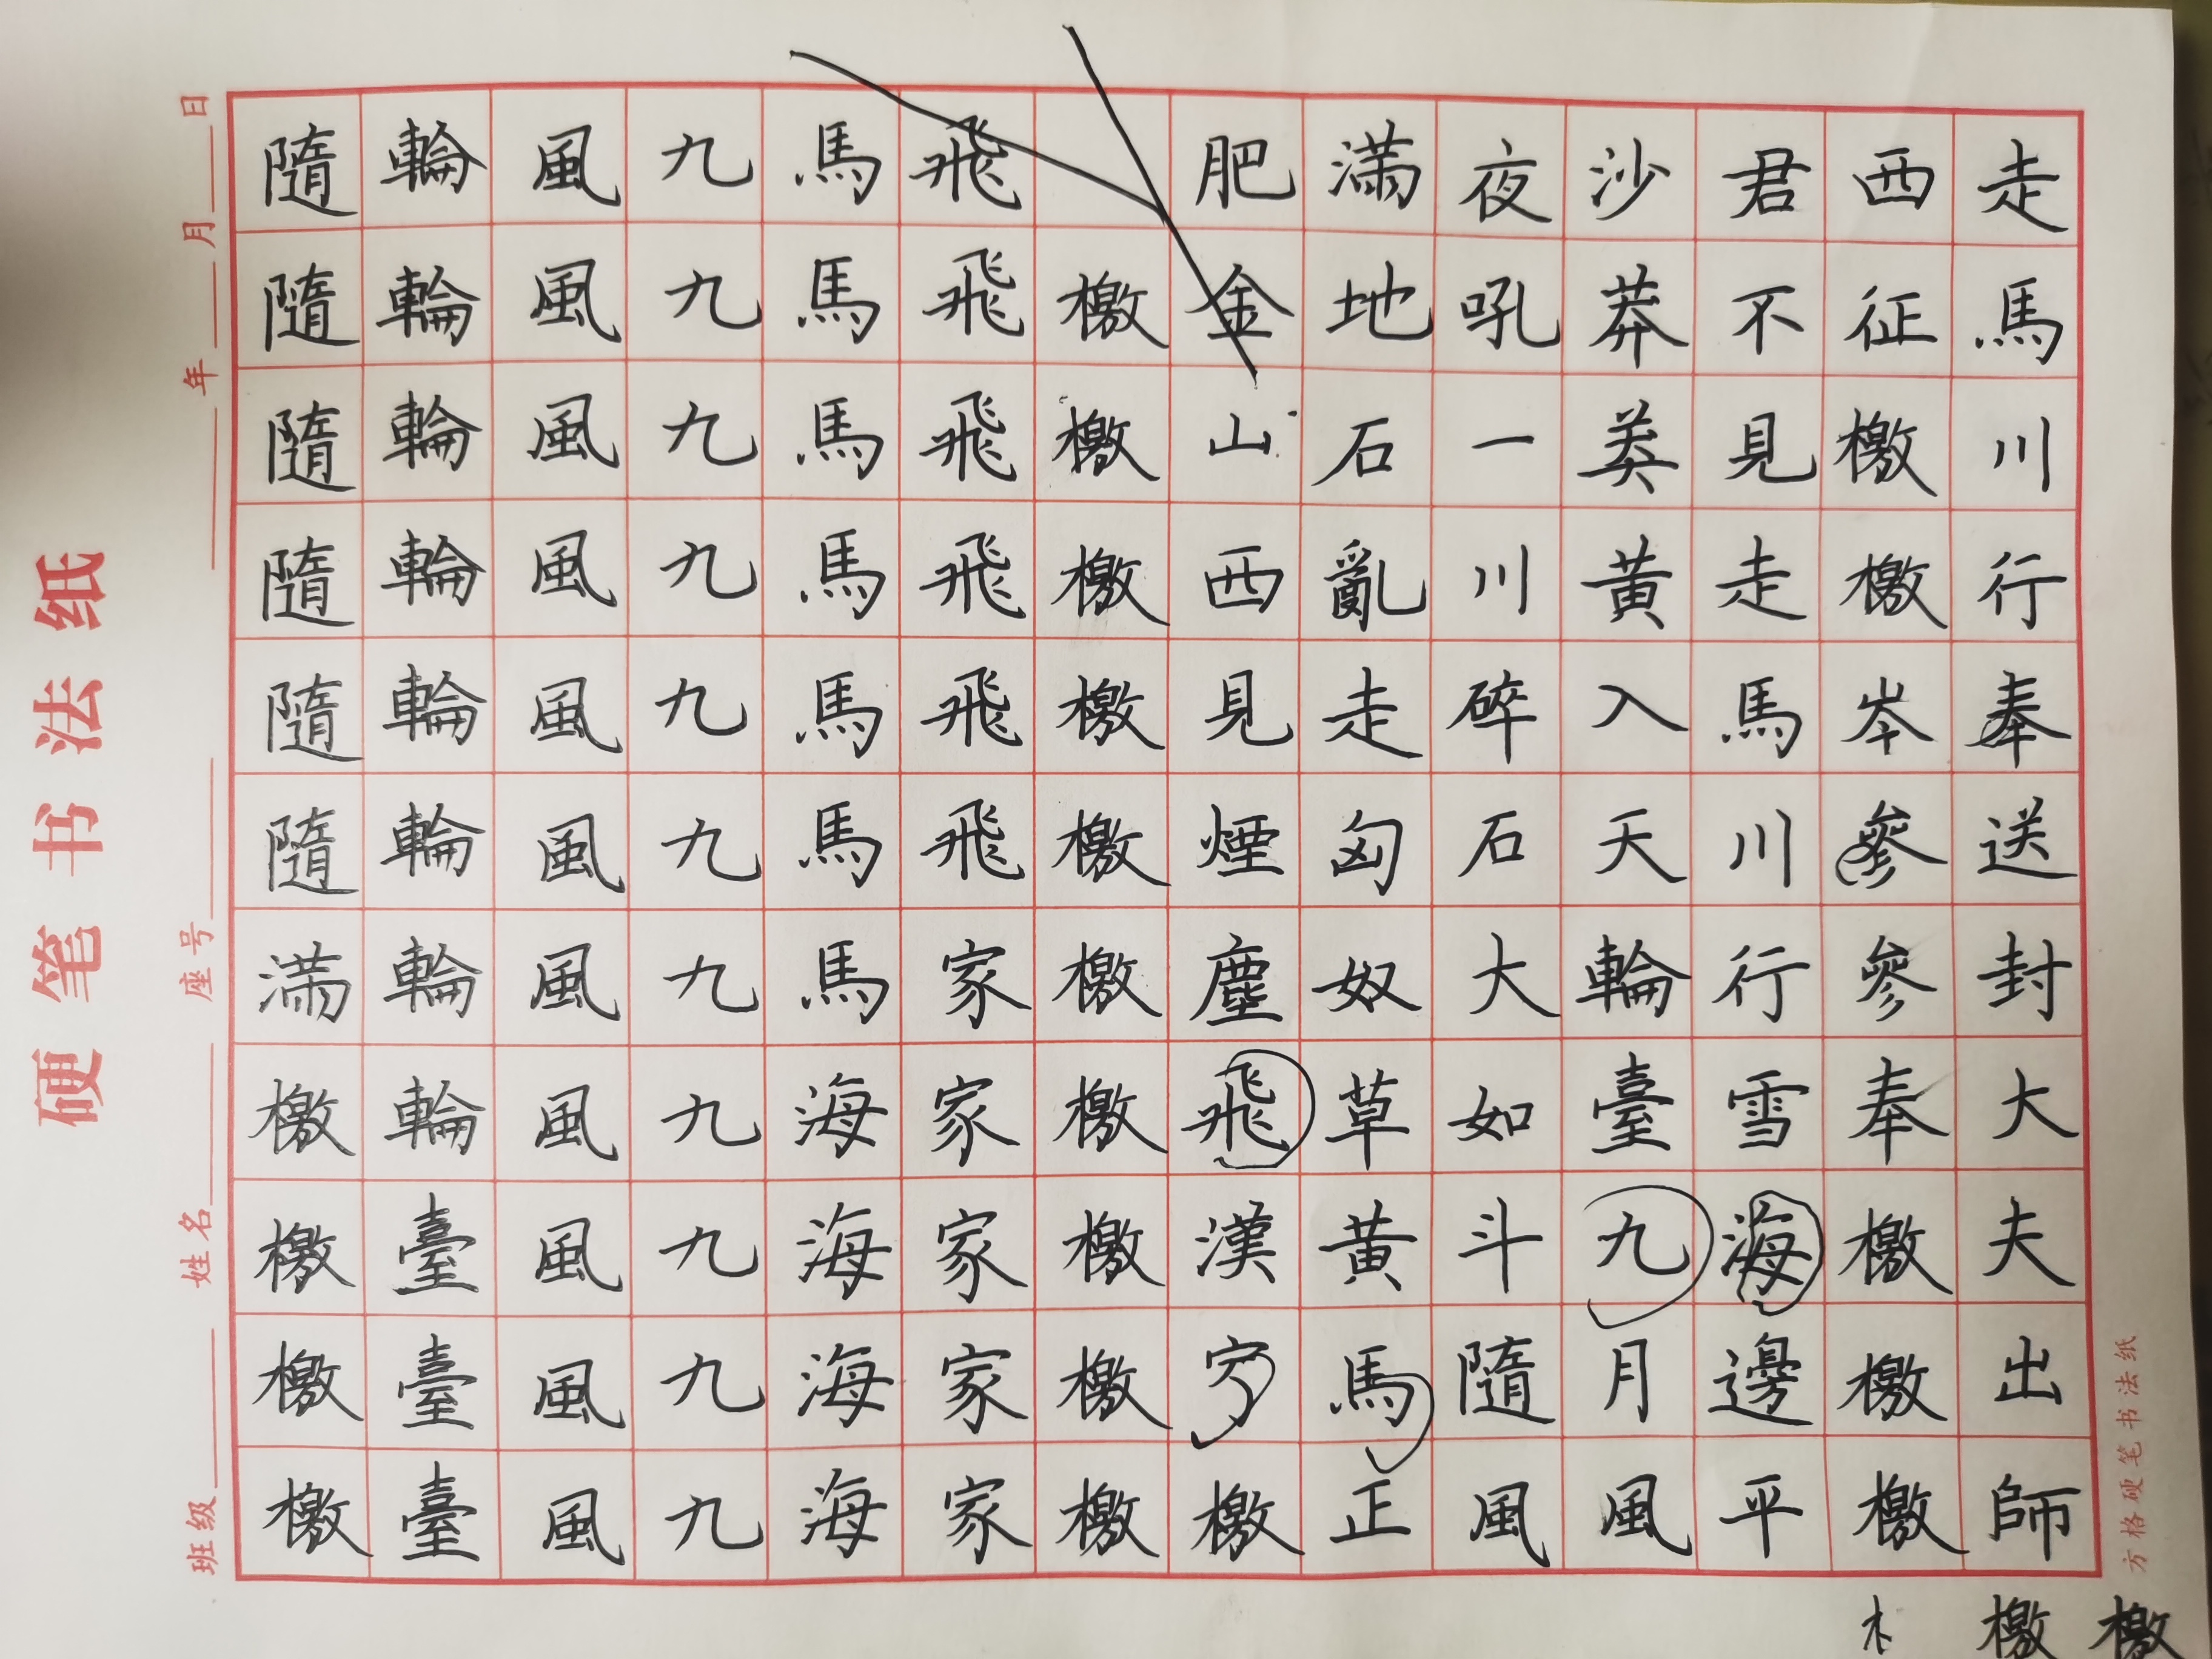 硬笔书法纸
班级 姓名 座号 年 月 日
走馬川行奉送封大夫出師
西征檄檄岑參參奉檄檄檄
君不見走馬川行雪海邊平
沙莽黃入天輪臺九月風
夜吼一川碎石大如斗隨風
滿地石亂走匈奴草黃馬正
肥金山西見煙塵飛漢檄
檄檄檄檄檄檄檄檄檄檄
飛飛飛飛飛飛家家家家家
馬馬馬馬馬馬馬海海海海
九九九九九九九九九九九
風風風風風風風風風風風
輪輪輪輪輪輪輪輪臺臺臺
隨隨隨隨隨隨滿檄檄檄檄
檄
檄
方格硬笔书法纸